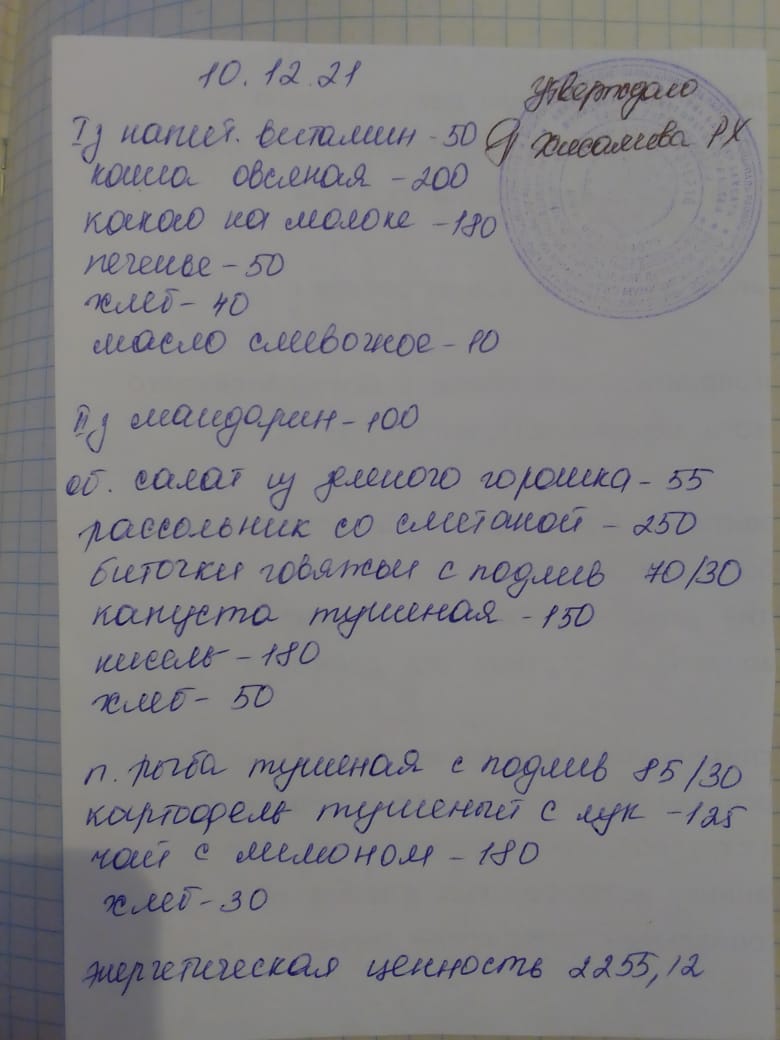 10.12.21
Утверждаю
Iз напит. витамин - 50
Хисамова РХ
каша овсяная - 200
какао на молоке - 180
печенье - 50
хлеб - 40
масло сливочное - 10
IIз мандарин - 100
об. салат из зеленого горошка - 55
рассольник со сметаной - 250
биточки говяжьи с подлив 70/30
капуста тушеная - 150
кисель - 180
хлеб - 50
п. рыба тушеная с подлив 85/30
картофель тушеный с лук - 125
чай с лимоном - 180
хлеб - 30
энергетическая ценность 2255,12